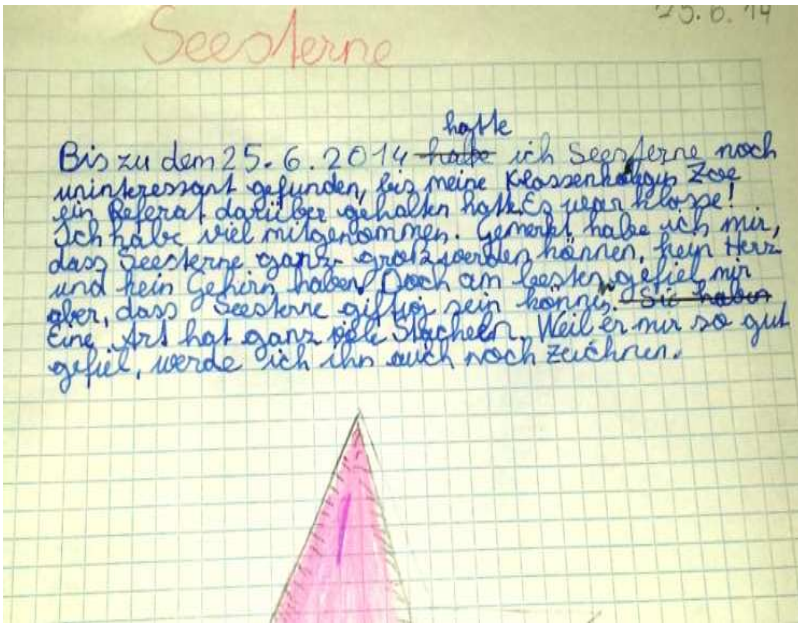 25.6.14
Seesterne
hatte
Bis zu dem 25.6.2014 habe ich Seesterne noch
uninteressant gefunden, bis meine Klassenkollegin Zoe
ein Referat darüber gehalten hat. Es war klasse!
Ich habe viel mitgenommen. Gemerkt habe ich mir,
dass Seesterne ganz groß werden können, kein Herz
und kein Gehirn haben! Doch am besten gefiel mir
aber, dass Seesterne giftig sein können. Sie haben
Eine Art hat ganz viele Stacheln. Weil er mir so gut
gefiel, werde ich ihn auch noch zeichnen.